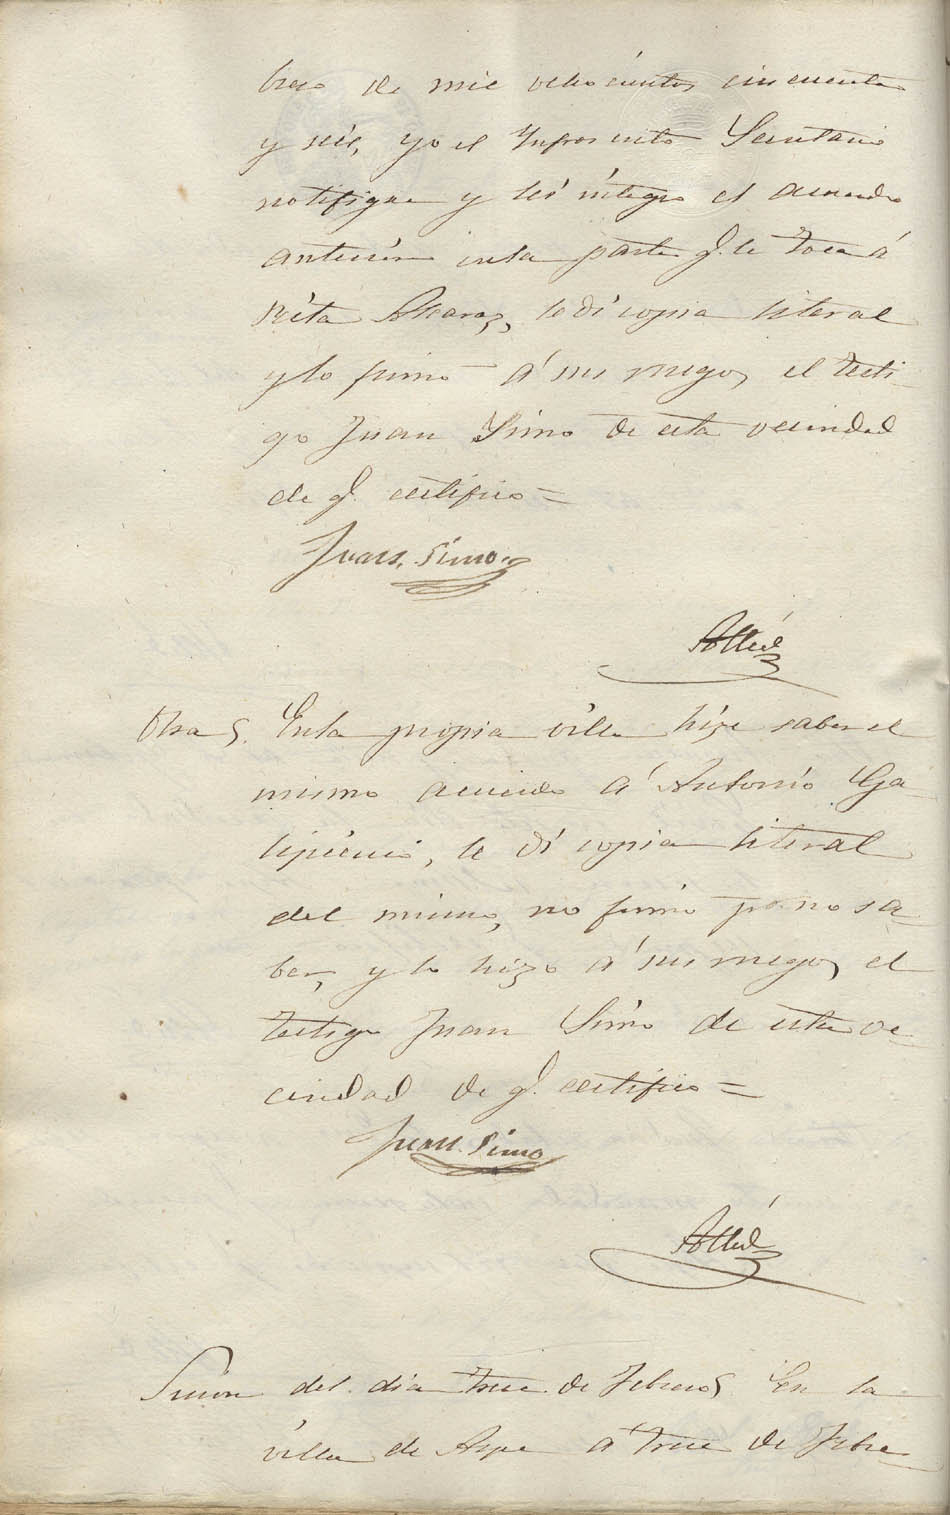 brero de mil ochocientos cincuenta
y seis, yo el Infrascrito Secretario
notifique y lei integro el acuerdo
anterior en la parte q.e le toca á
Rita Alcaraz, le di copia literal
y lo firmó á sus ruegos el testi-
go Juan Simo de esta vecindad
de q.e certifico =
Juan Simo
Otra. En la propia villa hize saber el
mismo acuerdo á Antonio Ga-
lipienso, le di copia literal
del mismo, no firmó por no sa-
ber, y lo hizo á sus ruegos el
testigo Juan Simo de esta ve-
cindad de q.e certifico =
Juan Simo
Sesion del dia trece de Febrero. En la
villa de Aspe á trece de Febre-